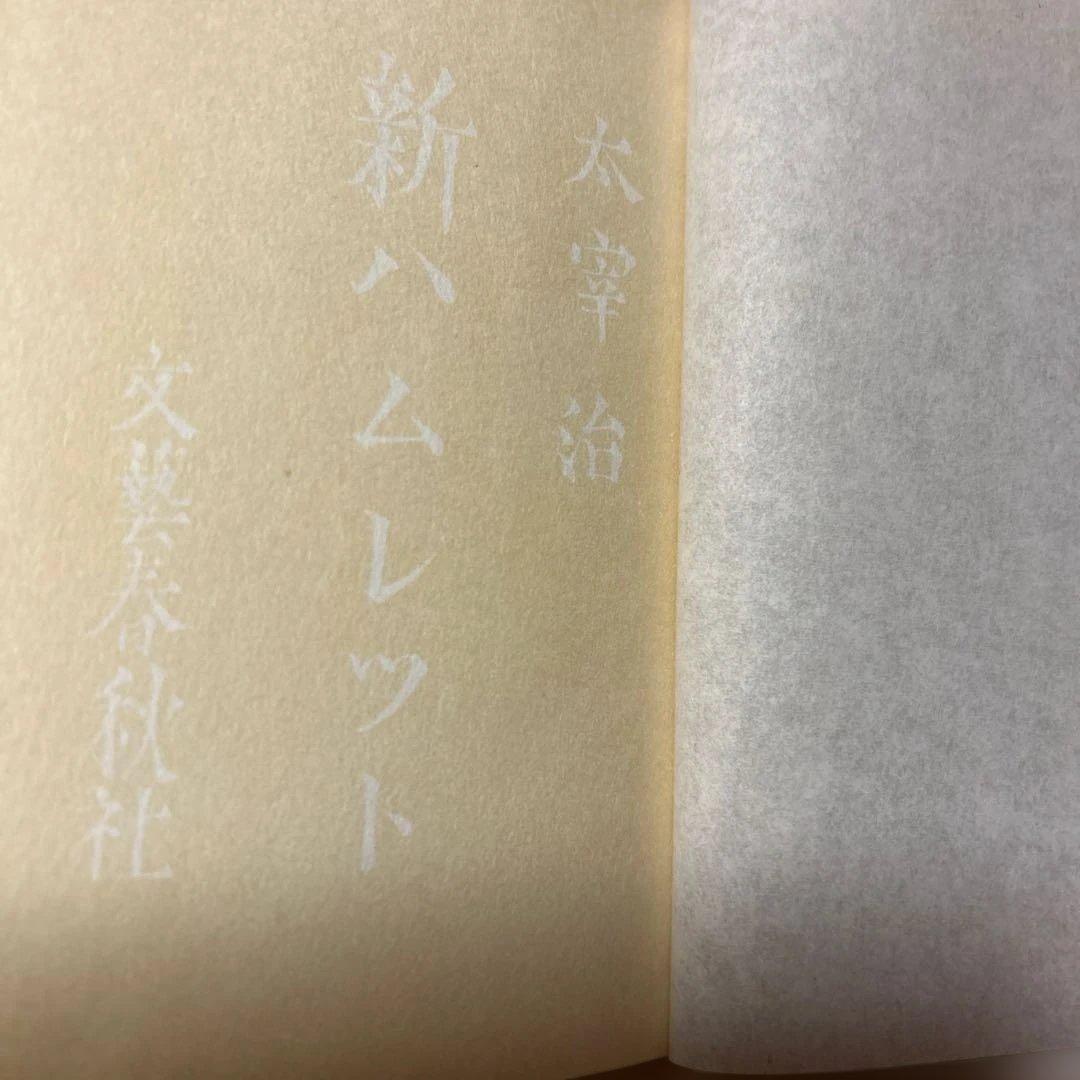 太宰治
新ハムレット
文藝春秋社